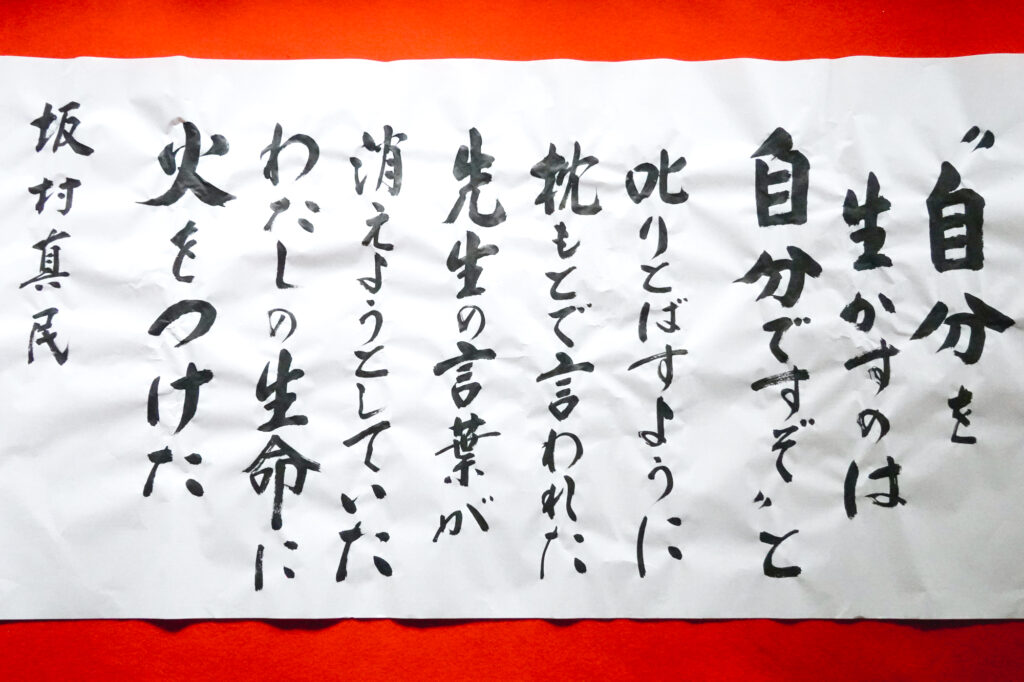 〝自分を
生かすのは
自分ですぞ〟と
叱りとばすように
枕もとで言われた
先生の言葉が
消えようとしていた
わたしの生命に
火をつけた
坂村真民